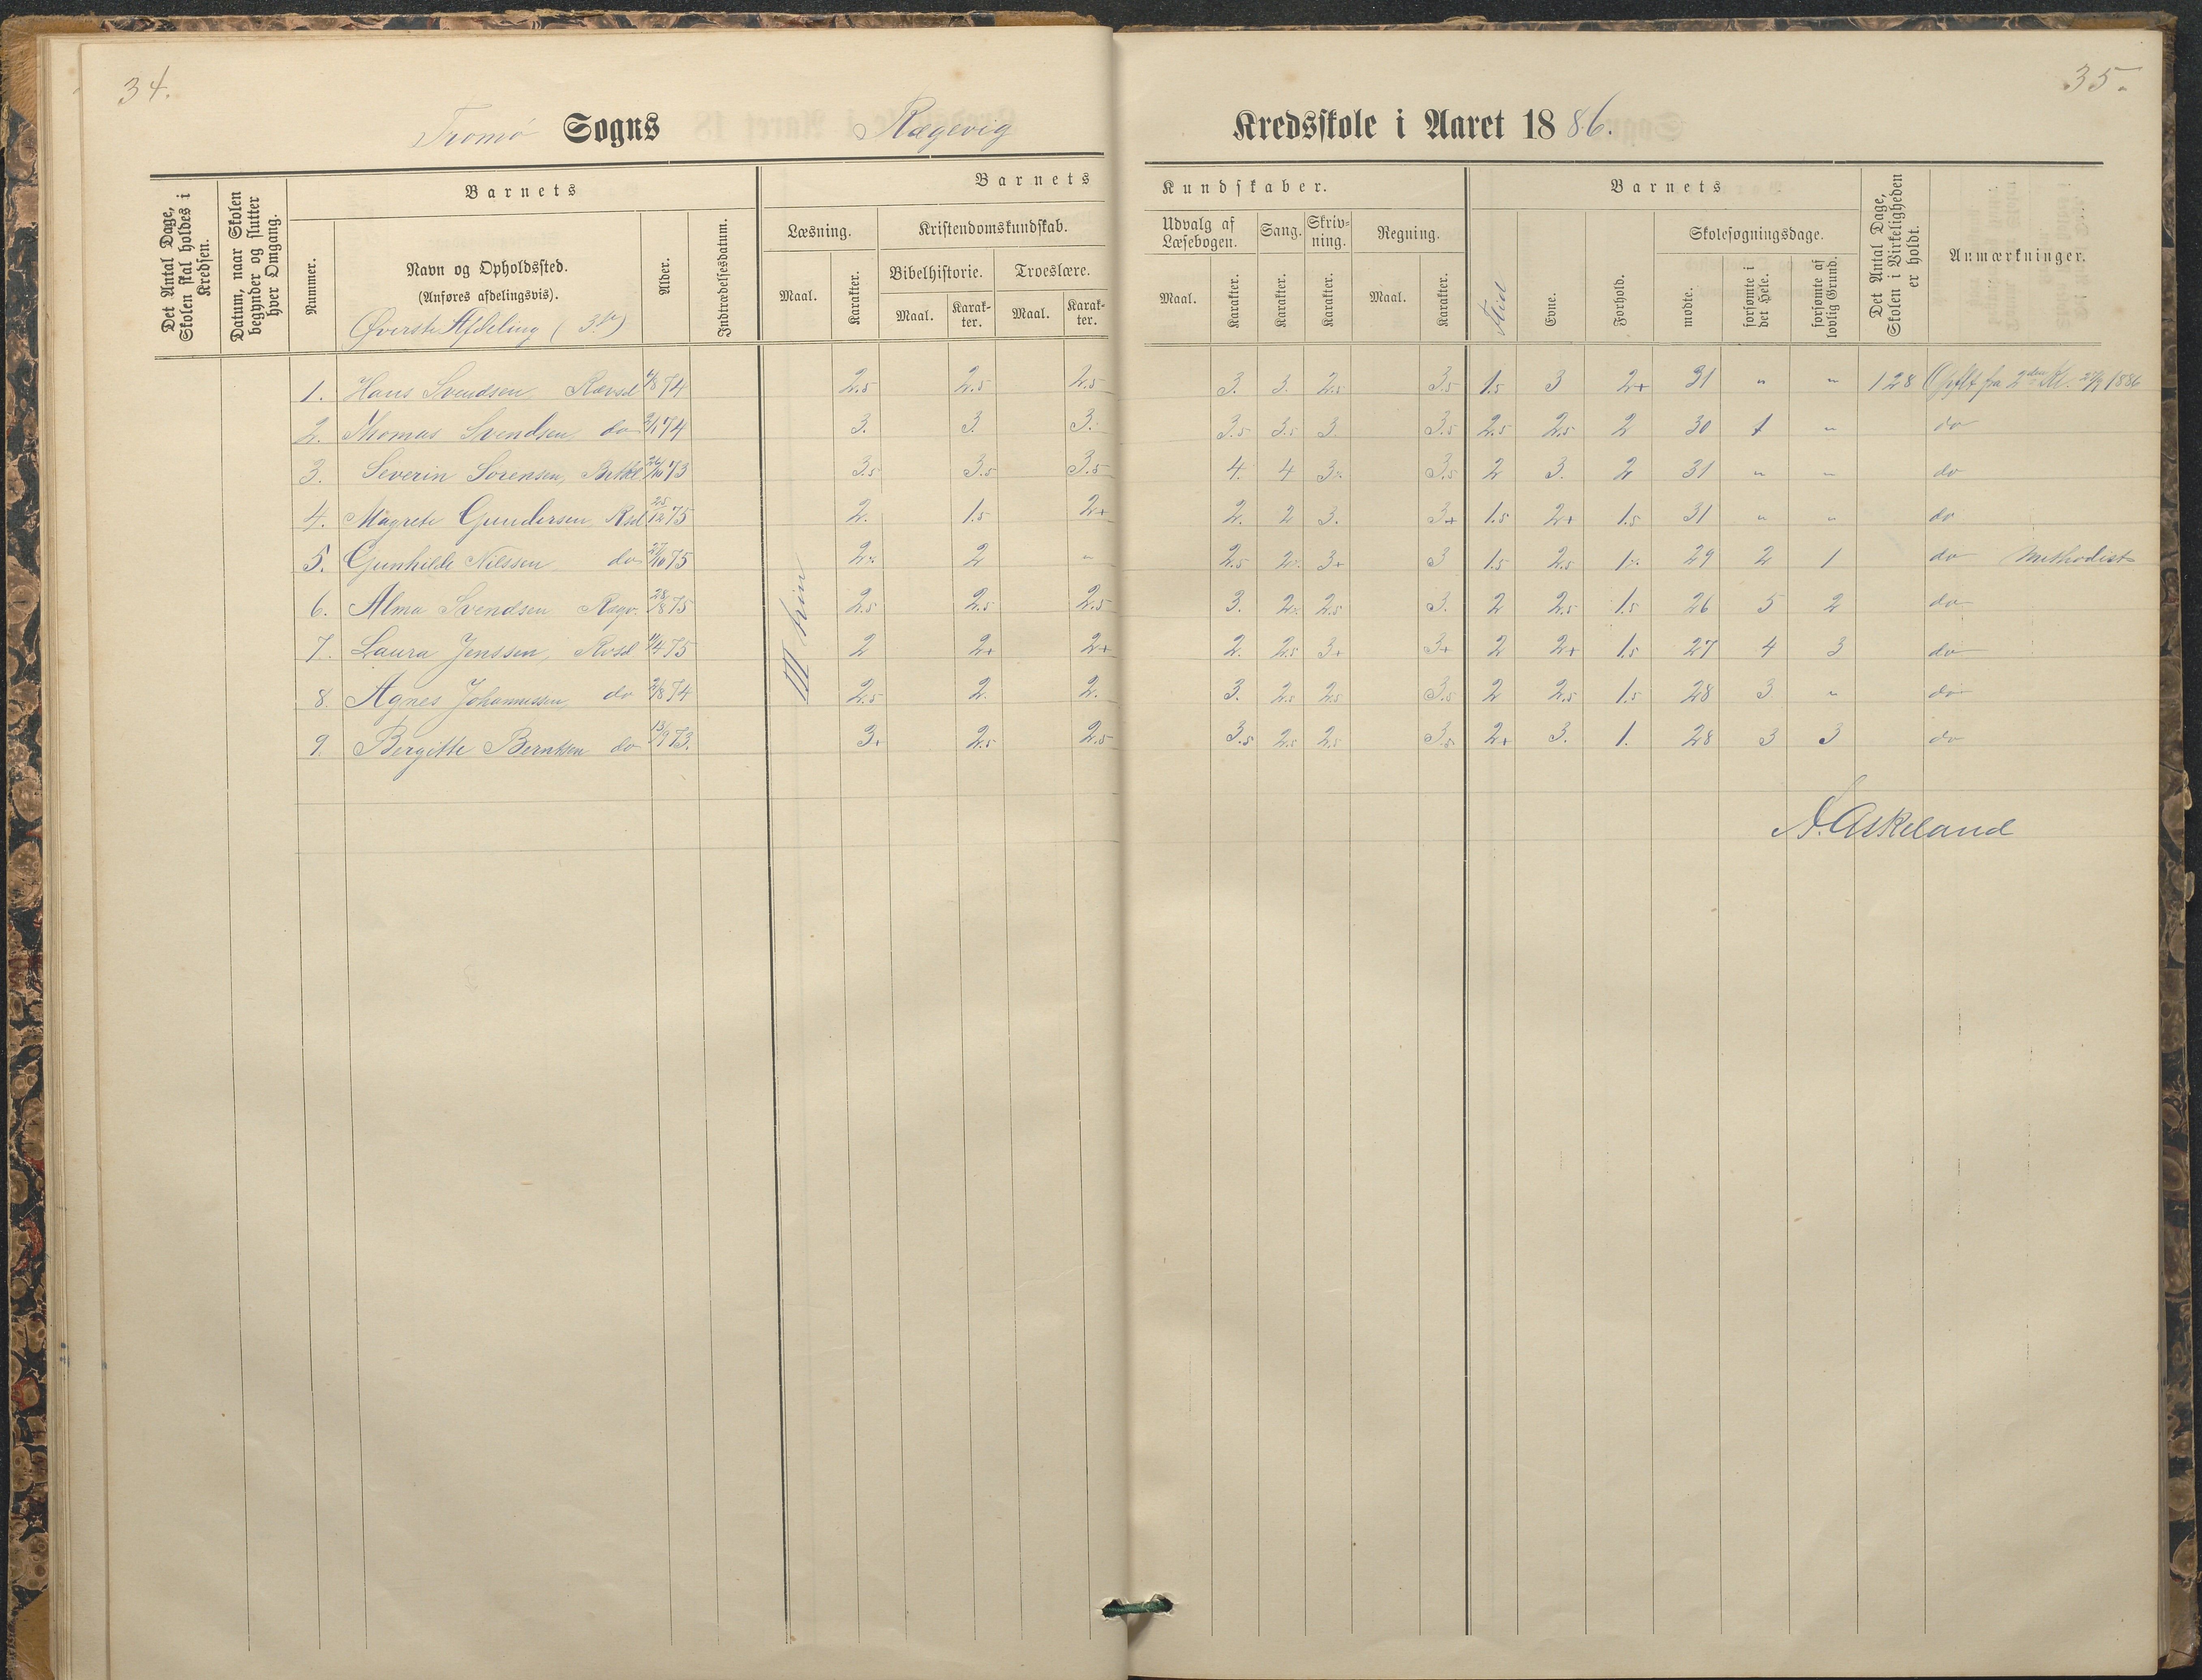 34.
35.
Tromø Sogns Rægevig Kredsskole i Aaret 1886.
Det Antal Dage, Skolen skal holdes i Kredsen.
Datum, naar Skolen begynder og slutter hver Omgang.
Barnets
Nummer.
Navn og Opholdssted.
(Anføres afdelingsvis).
Øverste Afdeling (3.)
Alder.
Indtrædelsesdatum.
Barnets Kundskaber.
Læsning.
Maal. Karakter.
Kristendomskundskab.
Bibelhistorie. Troeslære.
Maal. Karakter. Maal. Karakter.
Udvalg af Læsebogen.
Maal. Karakter.
Sang.
Karakter.
Skrivning.
Karakter.
Regning.
Maal. Karakter.
Barnets
Flid Evne. Forhold.
Skolesøgningsdage.
mødte. forsømte i det Hele. forsømte af lovlig Grund.
Det Antal Dage, Skolen i Virkeligheden er holdt.
Anmærkninger.
III trin
1. Hans Svendsen, Rævsd 74 2.5 2.5 2.5 3. 3. 2.5 3.5 1.5 3 2+ 31 " " 128 Opflt fra 2den Kl. 1886
2. Thomas Svendsen do 74 3. 3. 3. 3.5 3.5 3. 3.5 2.5 2.5 2 30 1 " do
3. Severin Sorensen, 26/10 73 3.5 3.5 3.5 4. 4 3.5 2 3. 2 31 " " do
4. Magrete Gundersen Rsd 25/12 75 2. 1.5 2+ 2. 2 3. 3+ 1.5 2+ 1.5 31 " " do
5. Gunhilde Nilssen do 27/10 75 2 " 2.5 3+ 3 1.5 2.5 29 2 1 do Methodist
6. Alma Svendsen Rægv. 28/8 75 2.5 2.5 2.5 3. 2.5 3. 2 2.5 1.5 26 5 2 do
7. Laura Jenssen, Rvsd 75 2 2+ 2+ 2. 2.5 3+ 3+ 2 2+ 1.5 27 4 3 do
8. Agnes Johannessen do 74 2.5 2. 2. 3. 2.5 2.5 3.5 2 2.5 1.5 28 3 " do
9. Bergitte Berntsen do 13/9 73. 3+ 2.5 2.5 3.5 2.5 2.5 3.5 2+ 3. 1. 28 3 3 do
A. Askeland